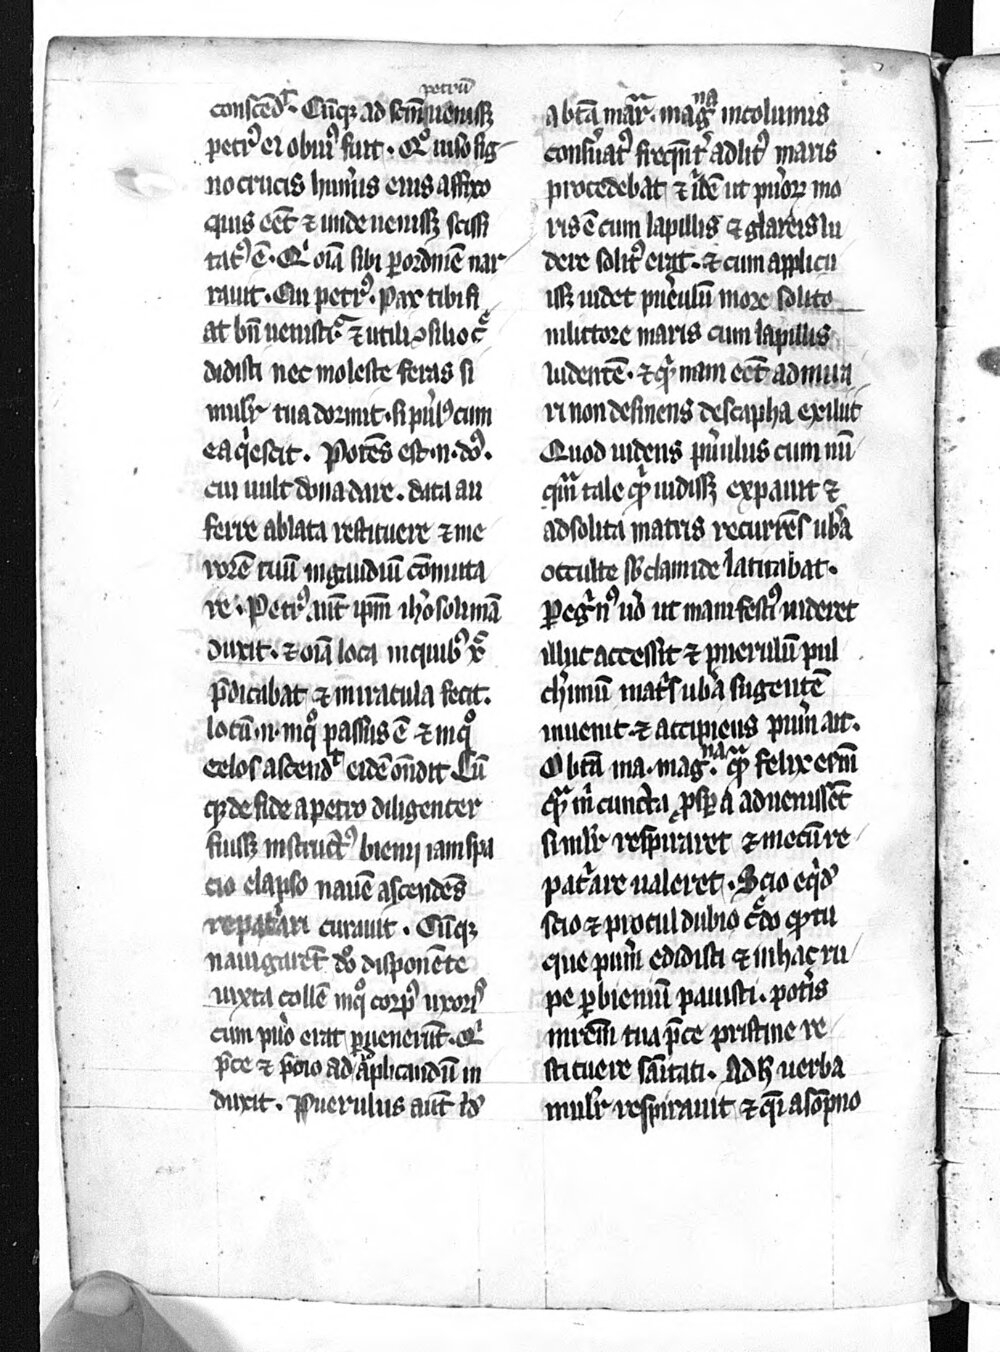 petrū
conscēdᵗ. Cūqꝫ ad scm̄ uenissꝫ
petrꝰ ei obuiꝰ fuit. Qͦ uiso sig
no crucis humis eius affixo
quis eēt ⁊ unde uenissꝫ scissi
tatꝰ ē. Qi oīa sibi ꝑ ordinē nar
rauit. Cui petrꝰ. Pax tibi fi
at bn̄ uenisti ⁊ utili ꝯsilio c
didisti nec moleste feras si
mulr̄ tua dormit. si puˡꝰ cum
ea qͥescit. Potēs est .n. dn̄s.
cui uult dona dare. data au
ferre ablata restituere ⁊ me
rorē tuū in gaudiū cōmuta
re. Petrꝰ aūt ipm̄ iherosolimā
duxit. ⁊ oīa loca in quibꝰ xp̄c
p̄dicabat ⁊ miracula fecit.
locū .n. in qͦ passus ē ⁊ in qͦ
celos ascendᵗ eidē on̄dit. Cū
qꝫ de fide a petro diligenter
fuissꝫ instructꝰ biennij iam spa
cio elapso nauē ascendēs
repatͥari curauit. Cūqꝫ
nauigarēt dō disponēte
iuxta collē in qͦ corpꝰ uxorͥs
cum puͦo erat ꝑuenerūt. Qͥ
p̄ce ⁊ p̄cio ad applicandū in
duxit. Puerulus aūt ibͥ
a btā mar. magna incolumis
ꝯseruatꝰ freqn̄tͬ ad litꝰ maris
procedebat ⁊ ibidē ut pueroꝝ mo
ris ē cum lapillis ⁊ glareis lu
dere solitꝰ erat. ⁊ cum applicu
issꝫ uidet puerulū more solito
in littore maris cum lapillis
ludentē. ⁊ qͥnam eēt admira
ri non desinens de scapha exiliit
Quod uidens puulus cum nū
qͣm tale qͥd uidissꝫ expauit ⁊
ad solita matris recurrēs ubͣa
occulte sb̄ clamide latitabat.
Peregͥnꝰ uͦo ut manifestiꝰ uideret
illuc accessit ⁊ puerulū pul
cherimū matͥs ubͣa sugentē
inuenit. ⁊ accipiens puum ait.
O btā ma. magna. qͣm felix essem
qͣm m̄ cuncta ꝓspͣa aduenissēt
si mulr̄ respiraret ⁊ mecū re
patͥare ualeret. Scio eqͥdē
scio ⁊ procul dubio cͤdo qͥ tu
que puum edidisti ⁊ in hac ru
pe ꝑ bienniū pauisti. potͥs
mr̄em tua p̄ce pristine re
stituere sanitati. Ad hec uerba
mulr̄ respirauit ⁊ qͣi a sompno